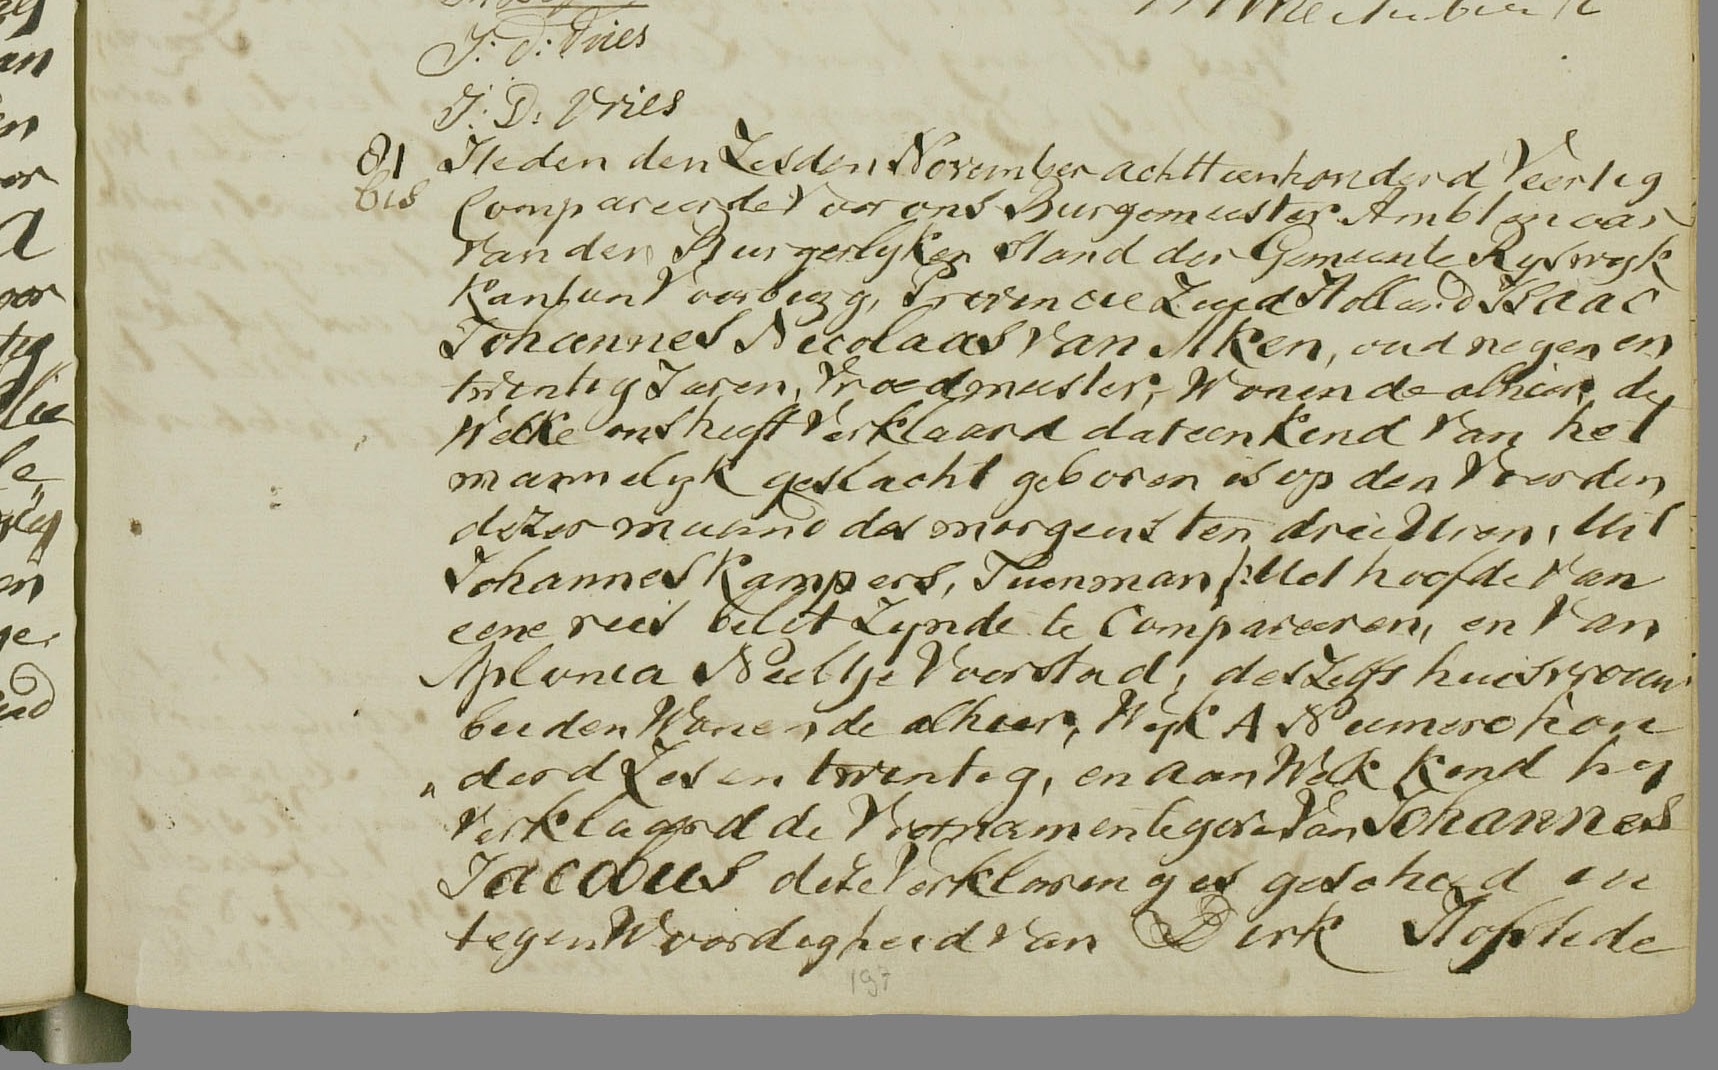 J: D: Vries
J: D: Vries
81 Heden den Zesden November achttienhonderd Veertig
bis Compareerde Voor ons Burgemeester Ambtenaar
Van den Burgerlyken Stand der Gemeente Ryswyk
Kanton Voorburg, Provincie Zuid Holland Isaac
Johannes Nicolaas Van Aken, oud negen en
twintig Jaren, Vroedmeester, Wonende alhier, de
Welke ons heeft Verklaard dat een Kind Van het
mannelyk geslacht geboren is op den Vierden
dezer maand des morgens ten drie Uren, Uit
Johannes Kampers, Tuinman /: Uit hoofde Van
eene reis belet Zynde te Compareeren, en Van
Aplonia Neeltje Voorstad, deszelfs huisvrouw
beiden Wonende alhier, Wyk A Numero hon
„ derd Zes en twintig, en aan Welk Kind hy
Verklaard de Voornamen te geven Van Johannes
Jacobus deze Verklaring is geschied in
tegenWoordigheid Van Dirk Hofstede
197